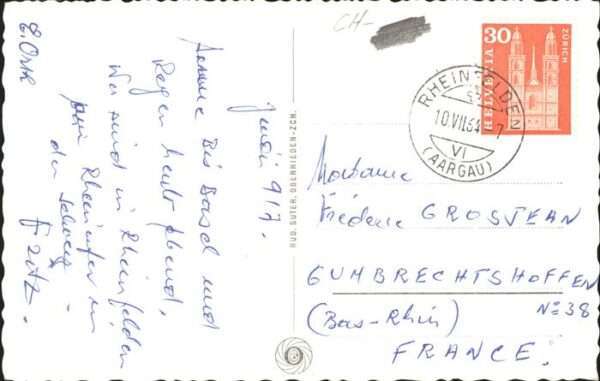 CH-
30
HELVETIA
ZÜRICH
RHEINFELDEN
10.VII.64-7
VI
(AARGAU)
RUD. SUTER, OBERRIEDEN-ZCH.
9/7.
Sonne bis Basel und
Regen heute Abend.
Wir sind in Rheinfelden
am Rheinufer in
der Schweiz.
Fritz.
Madame
Frédéric GROSJEAN
GUMBRECHTSHOFFEN
No 38
(Bas-Rhin)
FRANCE.